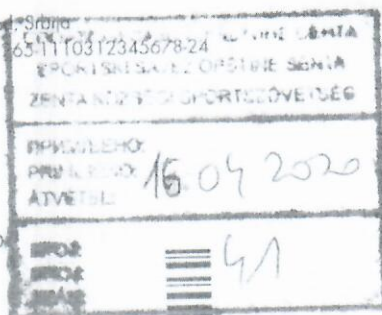 d. Srbija
65-1110312345678-24
OPŠTINE SENTA
SPORTSKI SAVEZ OPŠTINE SENTA
ZENTA KÖZSÉGI SPORTSZÖVETSÉG
ПРИМЉЕНО:
PRIMLJENO:
ÁTVÉTEL:
16 04 2020
БРОЈ:
BROJ:
SZÁM:
41